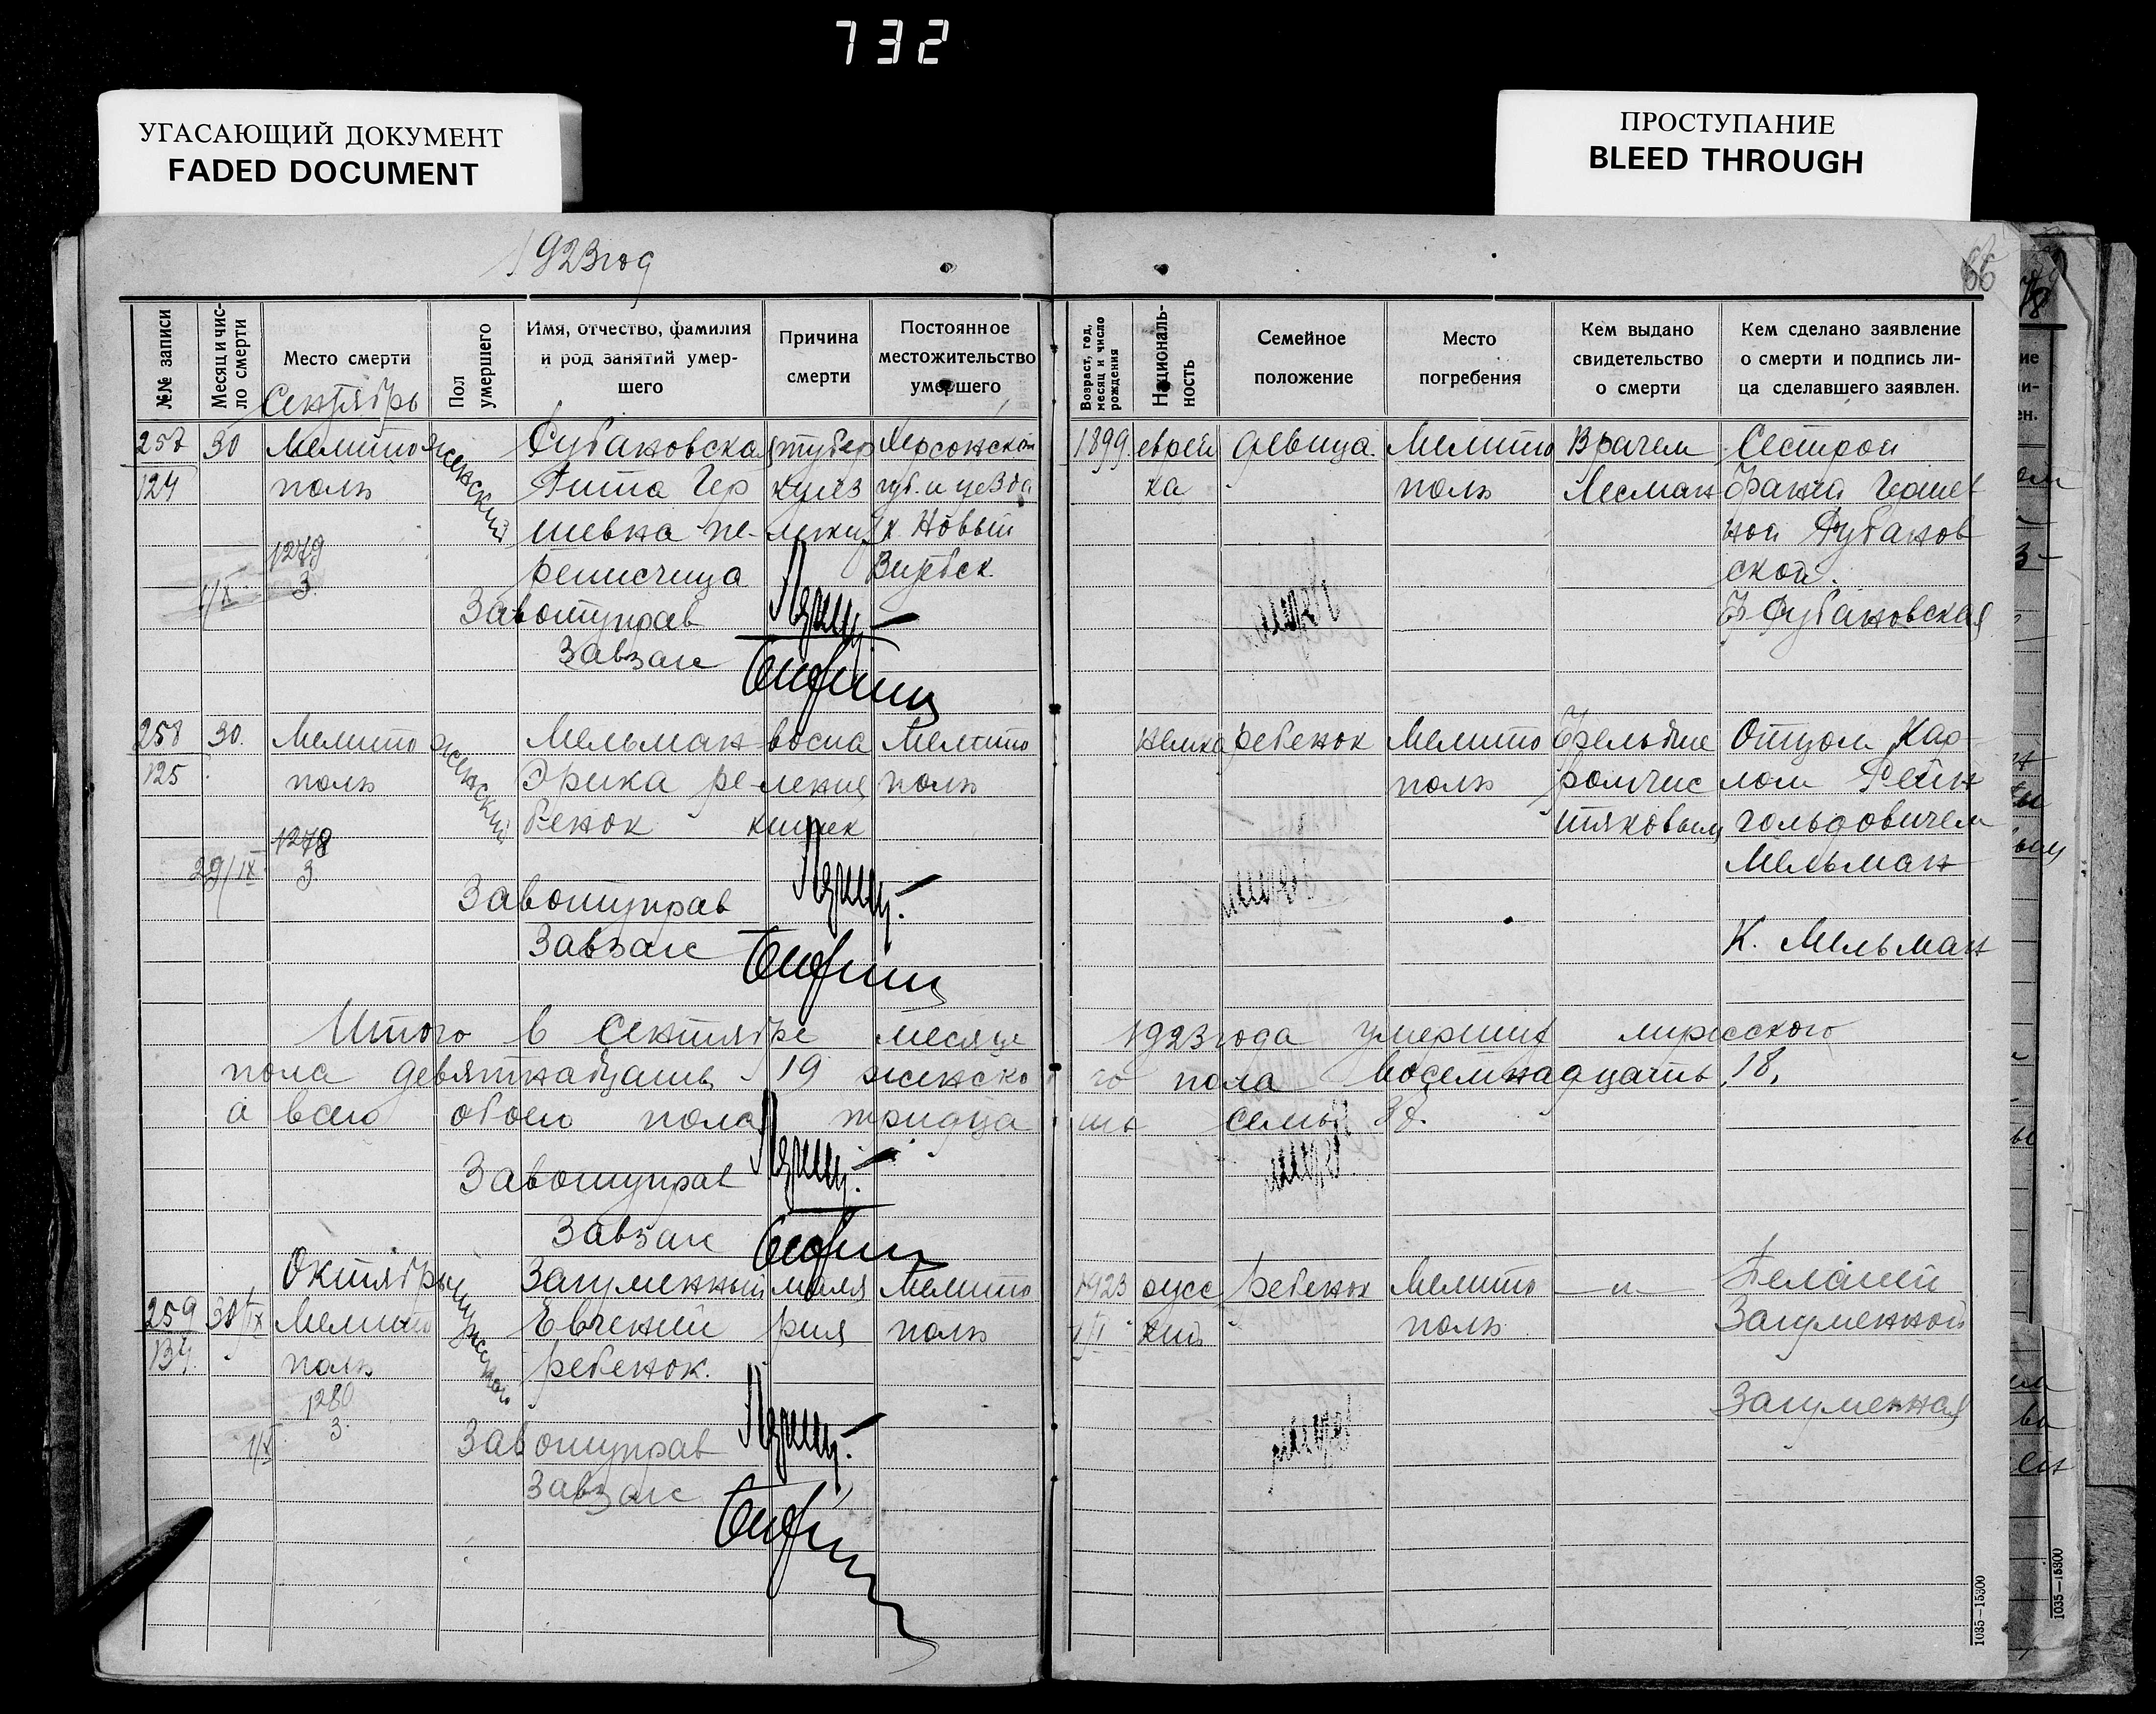 732
УГАСАЮЩИЙ ДОКУМЕНТ
FADED DOCUMENT
ПРОСТУПАНИЕ
BLEED THROUGH
1923 год
66
№№ записи
Месяц и чис-
ло смерти
Место смерти
Пол
умершего
Имя, отчество, фамилия
и род занятий умер-
шего
Причина
смерти
Постоянное
местожительство
умершего
Возраст, год,
месяц и число
рождения
Националь-
ность
Семейное
положение
Место
погребения
Кем выдано
свидетельство
о смерти
Кем сделано заявление
о смерти и подпись ли-
ца сделавшего заявлен.
Сентябрь
257
124
30
Мелито
поль
1279
3
1/X
женский
Дубановская
Гита Гер
шевна пе-
реписчица
тубер
кулез
легких
Херсонской
губ. и уезда
к. Новый
Витебск.
1899
еврей
ка
девица.
Мелито
поль
Врачем
Лесман
Сестрой
Фаней Гершев
ной Дубанов
ской.
Ф Дубановская
Завотуправ
Завзагс
258
125
30.
Мелито
поль
1278
3
29/IX
женский
Мельман
Эрика ре-
бенок
воспа
ление
кишек
Мелито
поль
немка
ребенок
Мелито
поль
Фельдше
ром Чис
тяковым
Отцом Кар
лом Рейн
гольдовичем
Мельман
К. Мельман
Завотуправ
Завзагс
Итого в Сентябре месяце 1923 года умерших мужского
пола девятнадцать 19 женско го пола восемнадцать 18,
а всего обоего пола тридца ть семь 37.
Завотуправ
Завзагс
Октябрь
259
134
30/IX
Мелито
поль
1280
3.
1/X
мужского
Загуменный
Евгений
ребенок.
маля
рия
Мелито
поль
1923
1/I
русс
кий
ребенок
Мелито
поль
—"—
Загуменной
Загуменная
Завотуправ
Завзагс
1035—15300
1035—15300